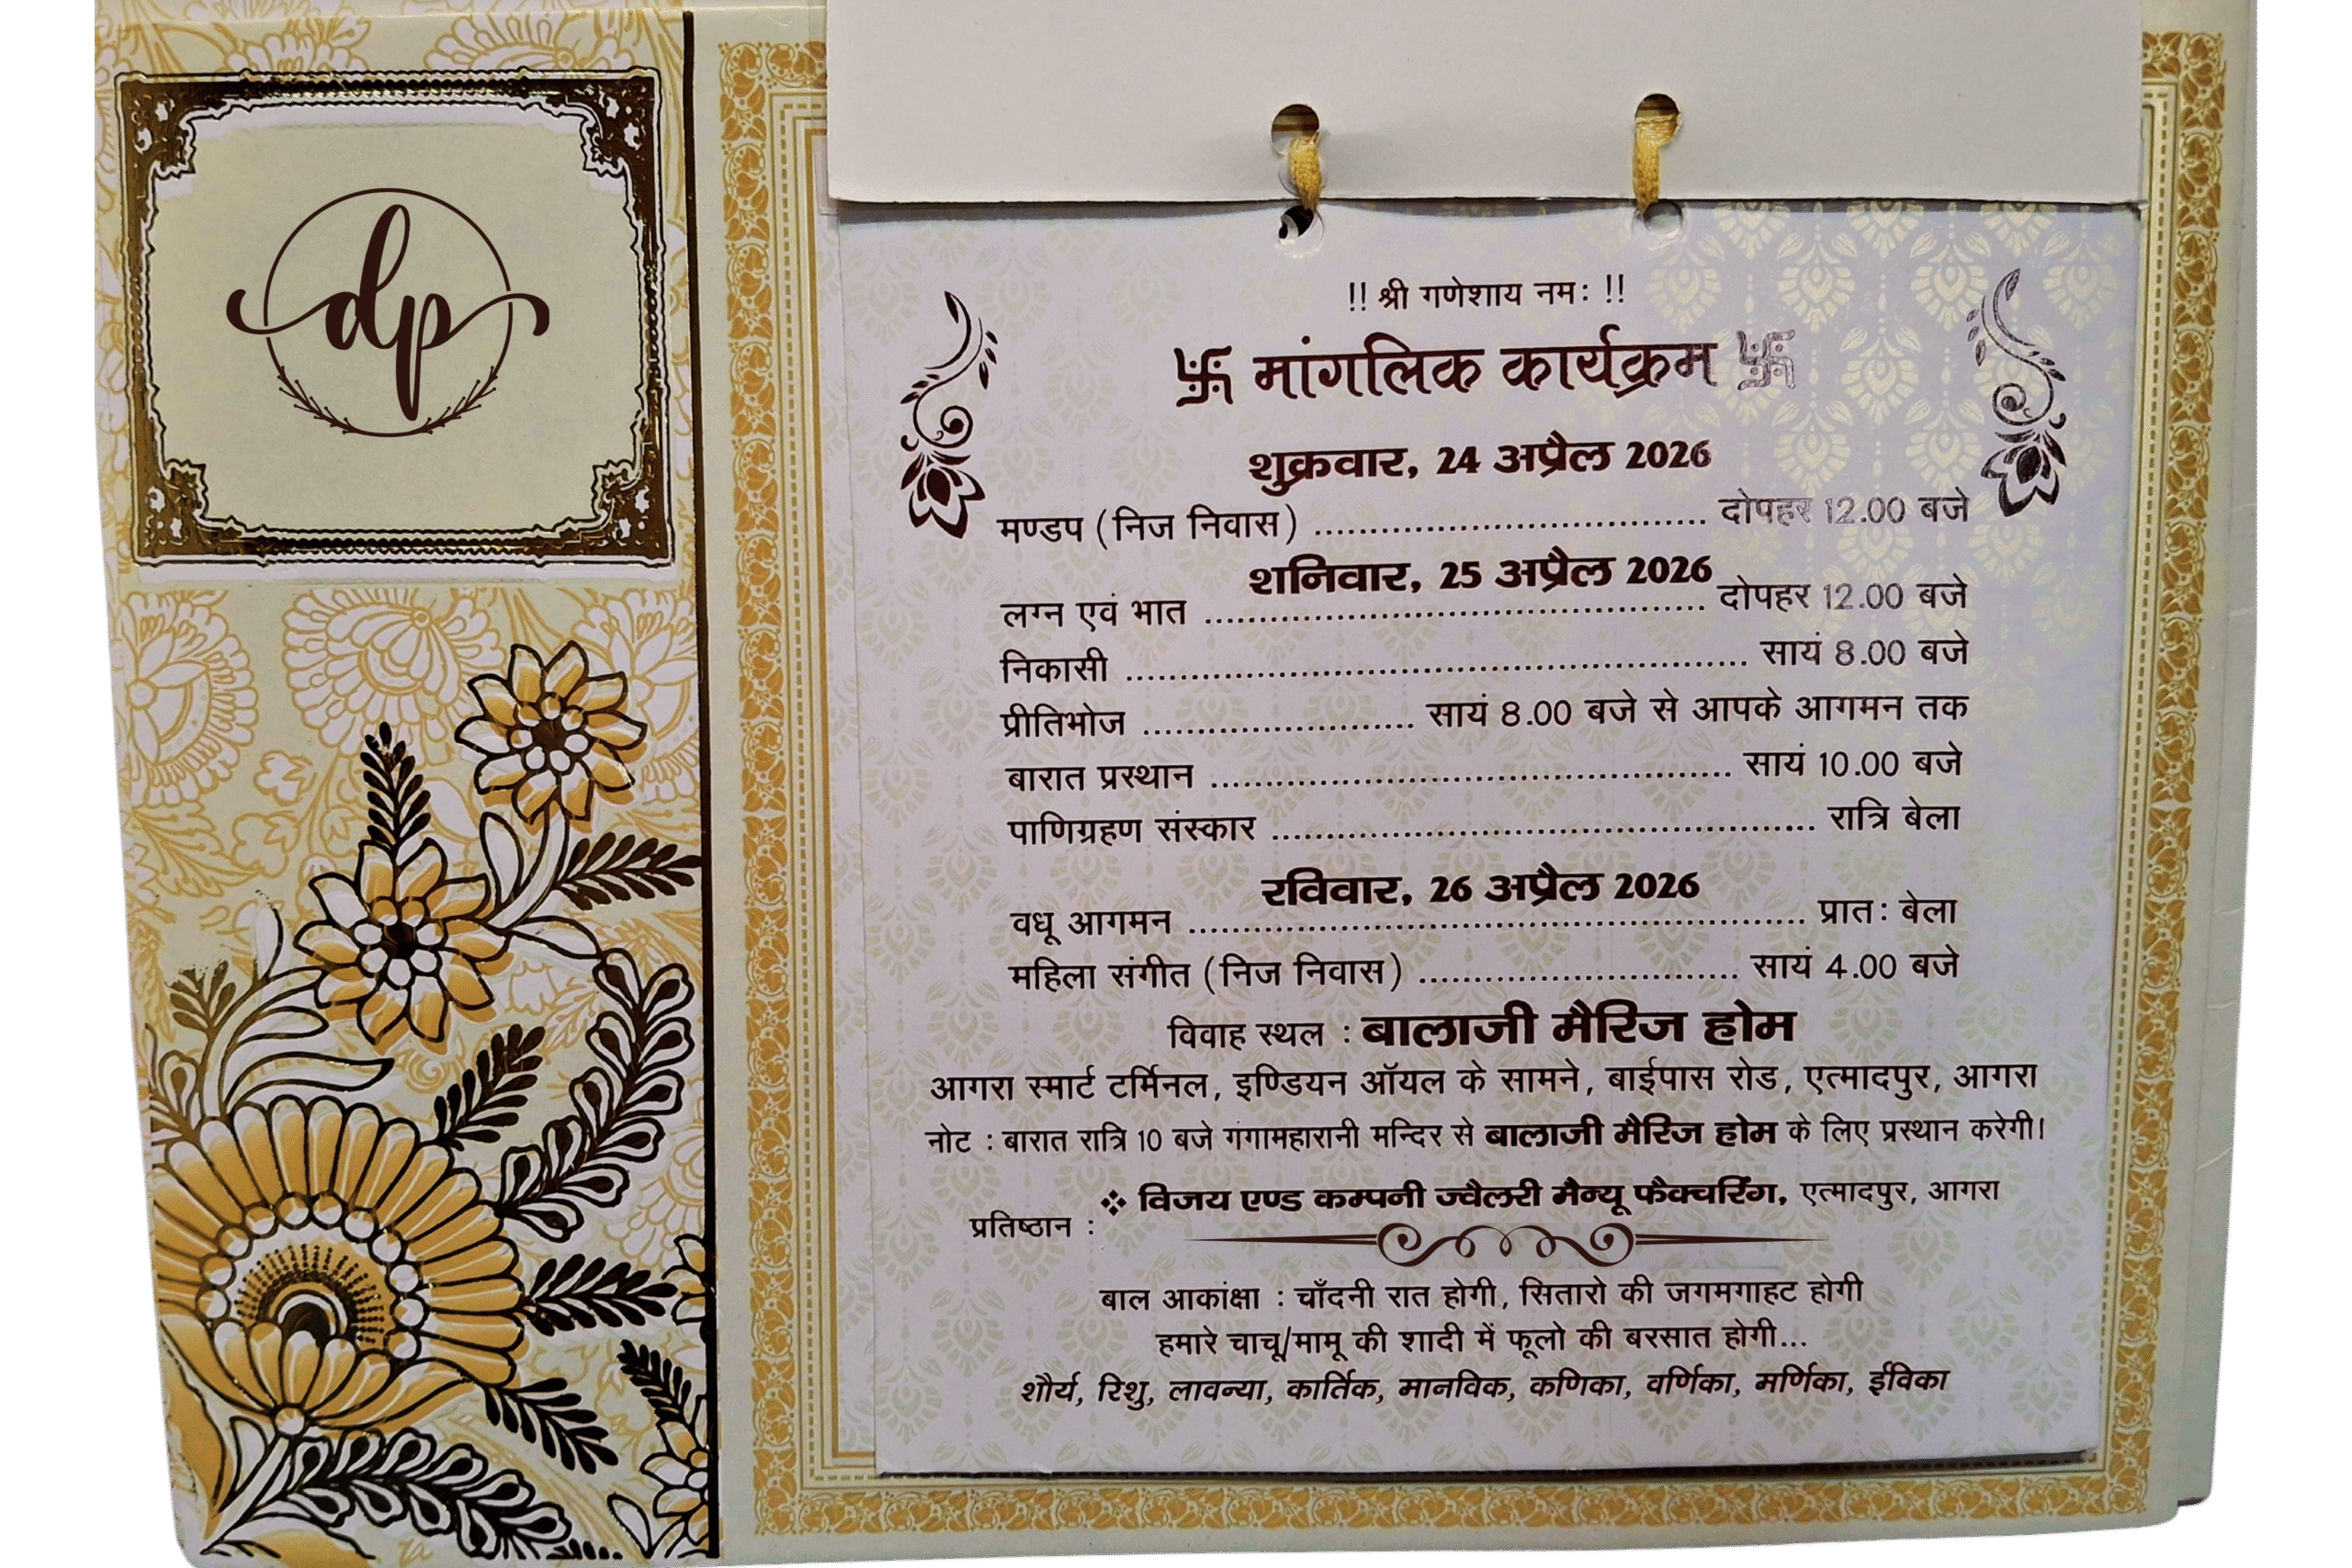 dp
!! श्री गणेशाय नमः !!
卐 मांगलिक कार्यक्रम 卐
शुक्रवार, 24 अप्रैल 2026
मण्डप (निज निवास) ........................................ दोपहर 12.00 बजे
शनिवार, 25 अप्रैल 2026
लग्न एवं भात ........................................ दोपहर 12.00 बजे
निकासी ........................................ सायं 8.00 बजे
प्रीतिभोज ........................... सायं 8.00 बजे से आपके आगमन तक
बारात प्रस्थान ........................................ सायं 10.00 बजे
पाणिग्रहण संस्कार ........................................ रात्रि बेला
रविवार, 26 अप्रैल 2026
वधू आगमन ........................................ प्रातः बेला
महिला संगीत (निज निवास) ................................ सायं 4.00 बजे
विवाह स्थल : बालाजी मैरिज होम
आगरा स्मार्ट टर्मिनल, इण्डियन ऑयल के सामने, बाईपास रोड, एत्मादपुर, आगरा
नोट : बारात रात्रि 10 बजे गंगामहारानी मन्दिर से बालाजी मैरिज होम के लिए प्रस्थान करेगी।
❖ विजय एण्ड कम्पनी ज्वैलरी मैन्यू फैक्चरिंग, एत्मादपुर, आगरा
प्रतिष्ठान :
बाल आकांक्षा : चाँदनी रात होगी, सितारो की जगमगाहट होगी
हमारे चाचू/मामू की शादी में फूलो की बरसात होगी...
शौर्य, रिशु, लावन्या, कार्तिक, मानविक, कणिका, वर्णिका, मर्णिका, ईविका